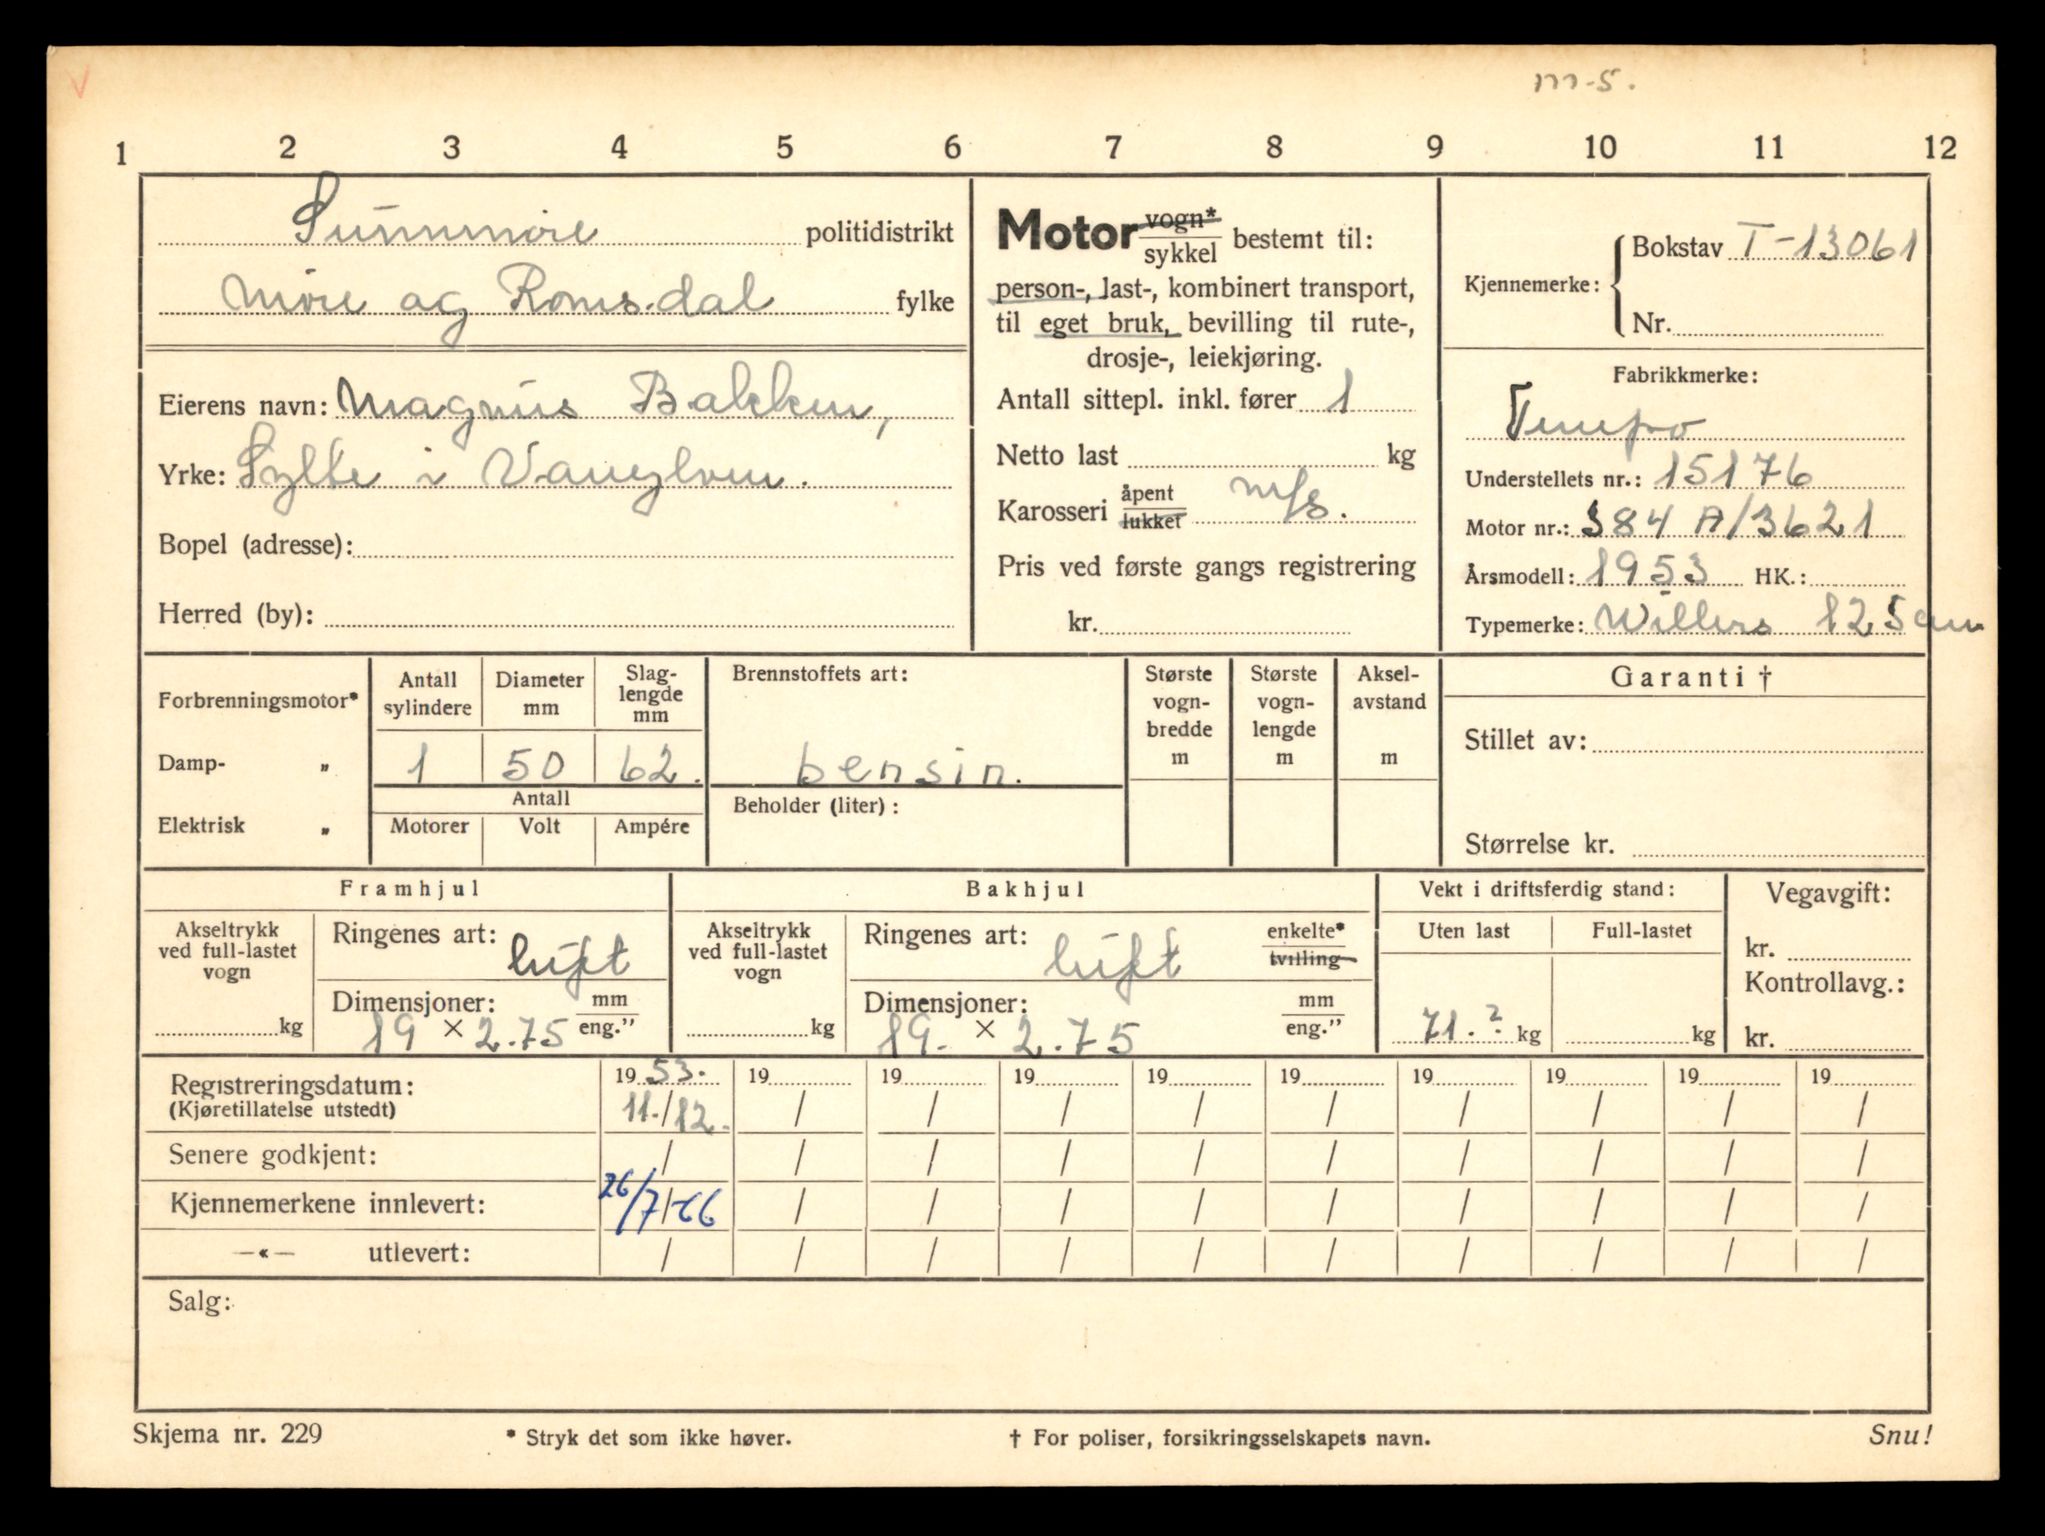 V
m-5.
1 2 3 4 5 6 7 8 9 10 11 12
Sunnmøre politidistrikt
Møre og Romsdal fylke
Eierens navn: Magnus Bakken,
Yrke: Sylte i Vanylven.
Bopel (adresse):
Herred (by):
Motor vogn* sykkel bestemt til:
person-, last-, kombinert transport,
til eget bruk, bevilling til rute-,
drosje-, leiekjøring.
Antall sittepl. inkl. fører 1
Netto last kg
Karosseri åpent lukket m/s.
Pris ved første gangs registrering
kr.
Kjennemerke: Bokstav T-13061
Nr.
Fabrikkmerke:
Tempo
Understellets nr.: 15176
Motor nr.: 384 A/3621
Årsmodell: 1953 HK.:
Typemerke: Willers 125 cm
Forbrenningsmotor*
Damp- „
Elektrisk „
Antall sylindere
Diameter mm
Slag-lengde mm
1 50 62.
Antall
Motorer Volt Ampére
Brennstoffets art:
bensin.
Beholder (liter):
Største vogn-bredde m
Største vogn-lengde m
Aksel-avstand m
Garanti †
Stillet av:
Størrelse kr.
Framhjul
Akseltrykk ved full-lastet vogn
kg
Ringenes art: luft
Dimensjoner: mm eng.”
19 × 2.75
Bakhjul
Akseltrykk ved full-lastet vogn
kg
Ringenes art: luft enkelte* tvilling
Dimensjoner: mm eng.”
19. × 2.75
Vekt i driftsferdig stand:
Uten last Full-lastet
71.2 kg kg
Vegavgift:
kr.
Kontrollavg.:
kr.
Registreringsdatum: 19 53. 19 19 19 19 19 19 19 19 19
(Kjøretillatelse utstedt) 11./12. / / / / / / / / /
Senere godkjent: / / / / / / / / / /
Kjennemerkene innlevert: 26/7-66 / / / / / / / / /
—«— utlevert: / / / / / / / / / /
Salg:
Skjema nr. 229 * Stryk det som ikke høver. † For poliser, forsikringsselskapets navn. Snu!